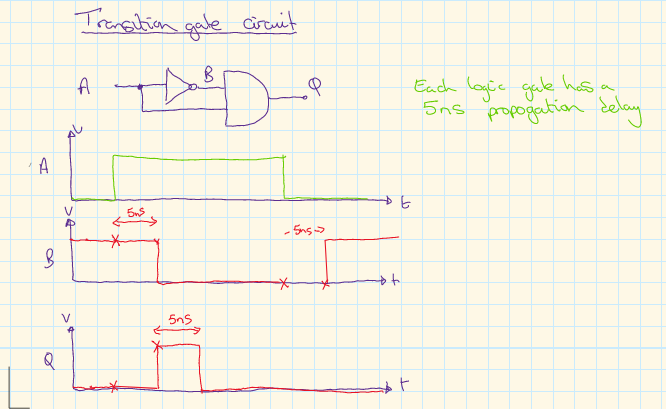 Transition gate circuit
A B Q
Each logic gate has a
5ns propogation delay
V
A
t
V 5ns -5ns→
B
t
V 5ns
Q
t